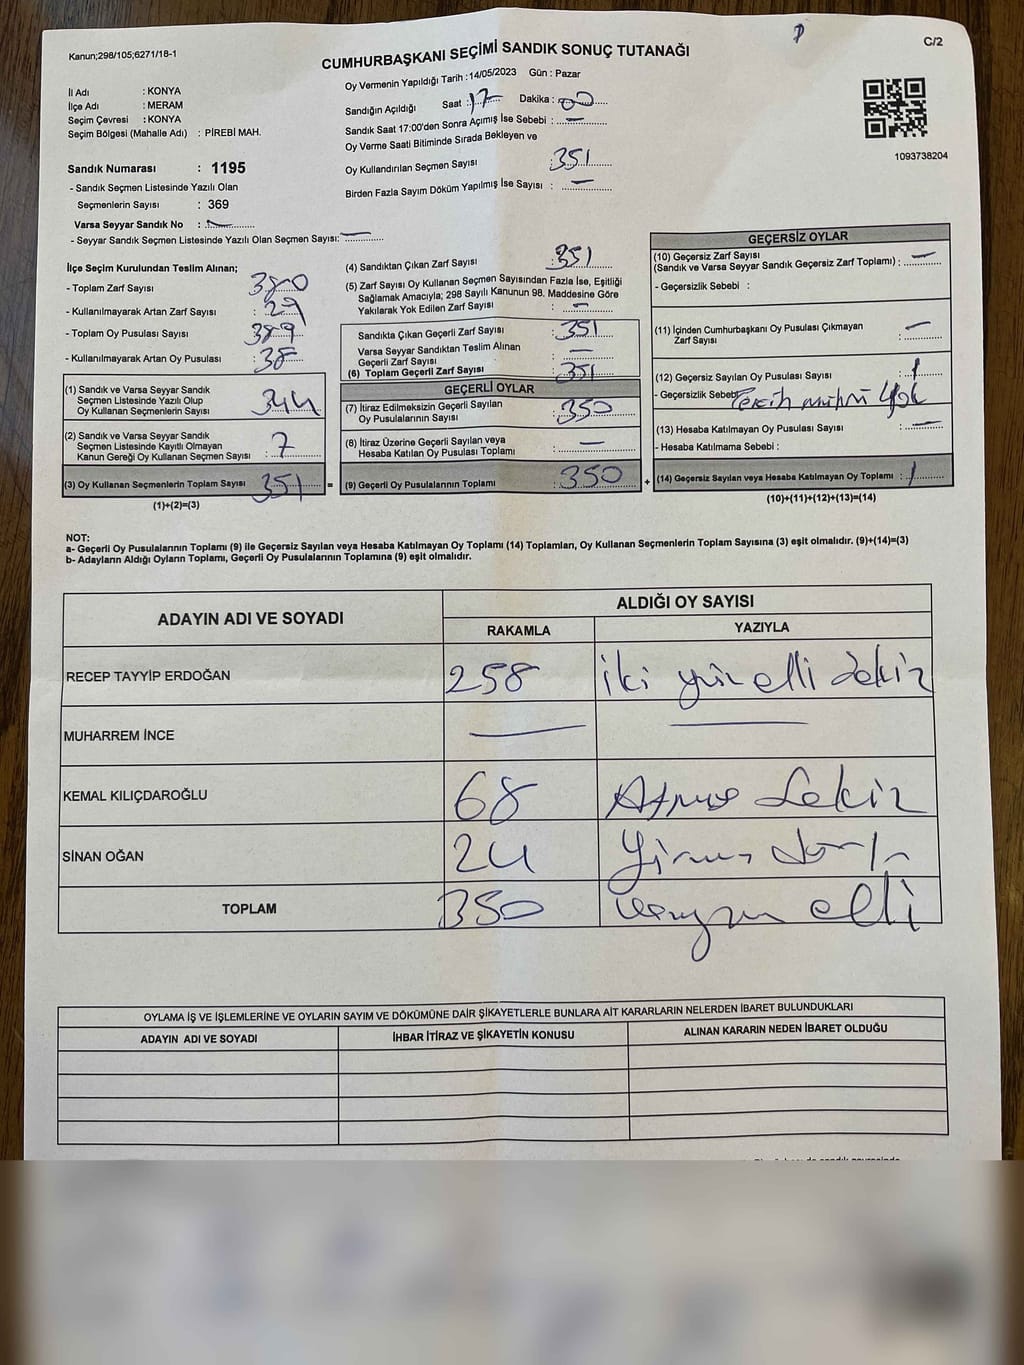 Kanun;298/105;6271/18-1
C/2
CUMHURBAŞKANI SEÇİMİ SANDIK SONUÇ TUTANAĞI
Oy Vermenin Yapıldığı Tarih :14/05/2023 Gün : Pazar
İl Adı : KONYA
İlçe Adı : MERAM
Seçim Çevresi : KONYA
Seçim Bölgesi (Mahalle Adı) : PİREBİ MAH.
Sandığın Açıldığı Saat : 17 Dakika : 00
Sandık Saat 17:00'den Sonra Açımış İse Sebebi : —
Oy Verme Saati Bitiminde Sırada Bekleyen ve
Oy Kullandırılan Seçmen Sayısı : 351
Birden Fazla Sayım Döküm Yapılmış İse Sayısı : —
1093738204
Sandık Numarası : 1195
- Sandık Seçmen Listesinde Yazılı Olan
Seçmenlerin Sayısı : 369
Varsa Seyyar Sandık No : —
- Seyyar Sandık Seçmen Listesinde Yazılı Olan Seçmen Sayısı: —
İlçe Seçim Kurulundan Teslim Alınan;
- Toplam Zarf Sayısı : 380
- Kullanılmayarak Artan Zarf Sayısı : 29
- Toplam Oy Pusulası Sayısı : 389
- Kullanılmayarak Artan Oy Pusulası : 38
(1) Sandık ve Varsa Seyyar Sandık
Seçmen Listesinde Yazılı Olup
Oy Kullanan Seçmenlerin Sayısı : 344
(2) Sandık ve Varsa Seyyar Sandık
Seçmen Listesinde Kayıtlı Olmayan
Kanun Gereği Oy Kullanan Seçmen Sayısı : 7
(3) Oy Kullanan Seçmenlerin Toplam Sayısı : 351 =
(1)+(2)=(3)
(4) Sandıktan Çıkan Zarf Sayısı : 351
(5) Zarf Sayısı Oy Kullanan Seçmen Sayısından Fazla İse, Eşitliği
Sağlamak Amacıyla; 298 Sayılı Kanunun 98. Maddesine Göre
Yakılarak Yok Edilen Zarf Sayısı : —
Sandıkta Çıkan Geçerli Zarf Sayısı : 351
Varsa Seyyar Sandıktan Teslim Alınan
Geçerli Zarf Sayısı : —
(6) Toplam Geçerli Zarf Sayısı : 351
GEÇERLİ OYLAR
(7) İtiraz Edilmeksizin Geçerli Sayılan
Oy Pusulalarının Sayısı : 350
(8) İtiraz Üzerine Geçerli Sayılan veya
Hesaba Katılan Oy Pusulası Toplamı : —
(9) Geçerli Oy Pusulalarının Toplamı : 350 +
GEÇERSİZ OYLAR
(10) Geçersiz Zarf Sayısı
(Sandık ve Varsa Seyyar Sandık Geçersiz Zarf Toplamı) : —
- Geçersizlik Sebebi :
(11) İçinden Cumhurbaşkanı Oy Pusulası Çıkmayan
Zarf Sayısı : —
(12) Geçersiz Sayılan Oy Pusulası Sayısı : 1
- Geçersizlik Sebebi Tercih mührü Yok
(13) Hesaba Katılmayan Oy Pusulası Sayısı : —
- Hesaba Katılmama Sebebi :
(14) Geçersiz Sayılan veya Hesaba Katılmayan Oy Toplamı : 1
(10)+(11)+(12)+(13)=(14)
NOT:
a- Geçerli Oy Pusulalarının Toplamı (9) ile Geçersiz Sayılan veya Hesaba Katılmayan Oy Toplamı (14) Toplamları, Oy Kullanan Seçmenlerin Toplam Sayısına (3) eşit olmalıdır. (9)+(14)=(3)
b- Adayların Aldığı Oyların Toplamı, Geçerli Oy Pusulalarının Toplamına (9) eşit olmalıdır.
ADAYIN ADI VE SOYADI
ALDIĞI OY SAYISI
RAKAMLA YAZIYLA
RECEP TAYYİP ERDOĞAN 258 iki yüz elli sekiz
MUHARREM İNCE — —
KEMAL KILIÇDAROĞLU 68 Atmış Sekiz
SİNAN OĞAN 24 Yirmi dört
TOPLAM 350 üçyüz elli
OYLAMA İŞ VE İŞLEMLERİNE VE OYLARIN SAYIM VE DÖKÜMÜNE DAİR ŞİKAYETLERLE BUNLARA AİT KARARLARIN NELERDEN İBARET BULUNDUKLARI
ADAYIN ADI VE SOYADI İHBAR İTİRAZ VE ŞİKAYETİN KONUSU ALINAN KARARIN NEDEN İBARET OLDUĞU